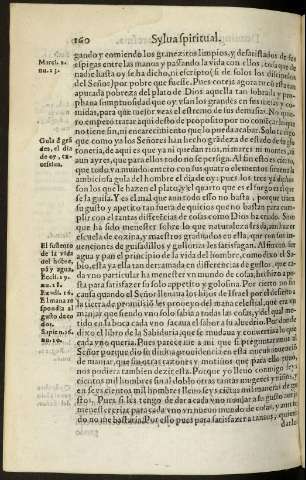 160 Sylua spiritual.
gando y comiendo los granezitos limpios, y desaristados de sus
espigas entre las manos y passando la vida con ellos. to que de
nadie hasta oy se ha dicho, ni escripto (si de solos los discipulos
del Señor) por pobre que fuesse. Pues coteja agora tu
apurada pobreza del plato de Dios aquella tan
phana sumptuosidad que oy vsan los grandes en sus mesas y co-
midas, para que mejor veas el estremo de sus demasias. No
su empeço tratar aqui desto de proposito por no
no tiene fin, ni encarecimiento que lo pueda acabar. Solo te digo
que como ya los Señores han hecho grãdeza de estado de la glo
tonería, de aqui es que ya ni quedan rios, ni mares, ni montes, ni
aun ayres, que para ellos todo no se persiga. Al fin esto es cierto,
que todo vn mundo entero con sus quatro elementos firuen a la
ambiciosa gula del hombre el dia de oy: pues los tres ya dichos
son los que le hazen el plato, y el quarto que es el fuego es el que
se la guisa. Y es el mal que aun todo esso no basta, porque
su gusto y apetito tan fuera de quicios que no bastan para cum-
plir con el tantas differencias de cosas como Dios ha criado. Sino
que ha sido menester sobre lo que naturaleza les da, aun hazer
escuela de cozina, y maestros graduados en ella, que con sus in-
uenciones de guisadillos y gullorias les satisfagan. Al fin con ser
agua y pan el principio de la vida del hombre, como dixo el Sa-
bio, esta ya ella tan derramada en differencias de gusto, que ca-
da vno particular ha menester vn mundo de cosas, hechizo a pos
ta para satisfazer su solo appetito y golosina. Por cierto no sin
causa quando el Señor lleuaua los hijos de Israel por el desierto a
la tierra de promissiõ les proueyo del maña celestial, que era vn
manjar que siendo vno solo sabia a todas las cosas, y del qual me-
tido en la boca cada vno sacaua el sabor a su aluedrio. Por donde
dixo el libro de la Sabiduria que se mudaua y conuertia lo que
cada vno queria. Pues parece me a mi que si preguntaramos al
Señor porque dio su diuina prouidencia en esta
de manjar, que sin otras razones y motiuos que para ello tuuo,
nos pudiera tambien dezir esta. Porque yo lleuo conmigo seys
cientos mil hombres sin al doblo otras tantas mugeres y niños, y
en seyscientos mil hombres lleuo seyscientas mil maneras de gu-
stos. Pues si les tengo de dar a cada vno manjar a su gusto aura
menester criar para cada vno vn nueuo mundo de cosas, y aun to
do no me bastaria. Por esso pues para satisfazer a tantos,
darles
Marci. 2.
nu. 23.
Gula ẽ grã
des, el dia
de oy, ex-
cessiua.
El sustento
de la vida
del hõbre,
pã y agua.
Eccli. 29.
nu. 28.
Exod. 16.
El mana re
spondia al
gusto de ca
da vno.
Sapien. 16.
nu. 20.